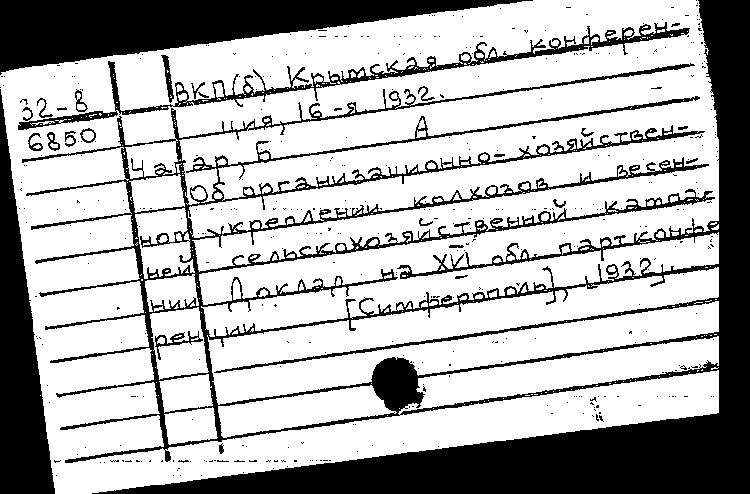 32-8 ВКП(б) Крымская обл. конферен-
6850 ция, 16-я. 1932.
А
Чагар, Б
Об организационно-хозяйствен-
ном укреплении колхозов и весен-
ней сельскохозяйственной кампа-
нии Доклад на XVI обл. партконфе
ренции. [Симферополь], [1932].